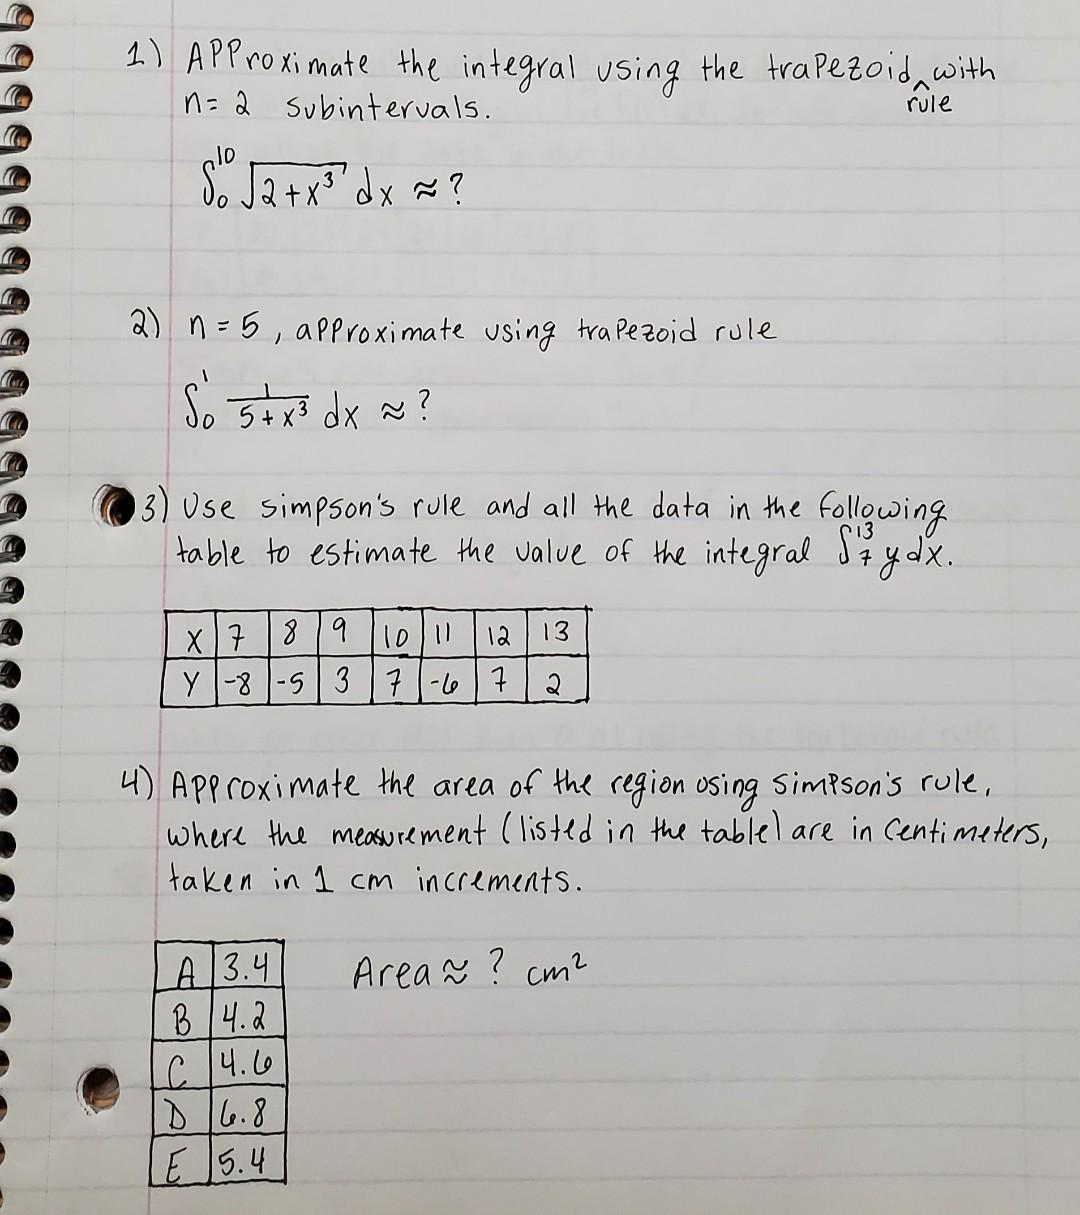 1) APProximate the integral using the trapezoid ^ with
rule
n = 2 subintervals.
∫₀¹⁰ √(2+x³) dx ≈ ?
2) n = 5, approximate using trapezoid rule
∫₀¹ 1/(5+x³) dx ≈ ?
3) Use simpson's rule and all the data in the following
table to estimate the value of the integral ∫₇¹³ y dx.
X 7 8 9 10 11 12 13
Y -8 -5 3 7 -6 7 2
4) Approximate the area of the region using simpson's rule,
where the measurement (listed in the table) are in centimeters,
taken in 1 cm increments.
A 3.4 Area ≈ ? cm²
B 4.2
C 4.6
D 6.8
E 5.4